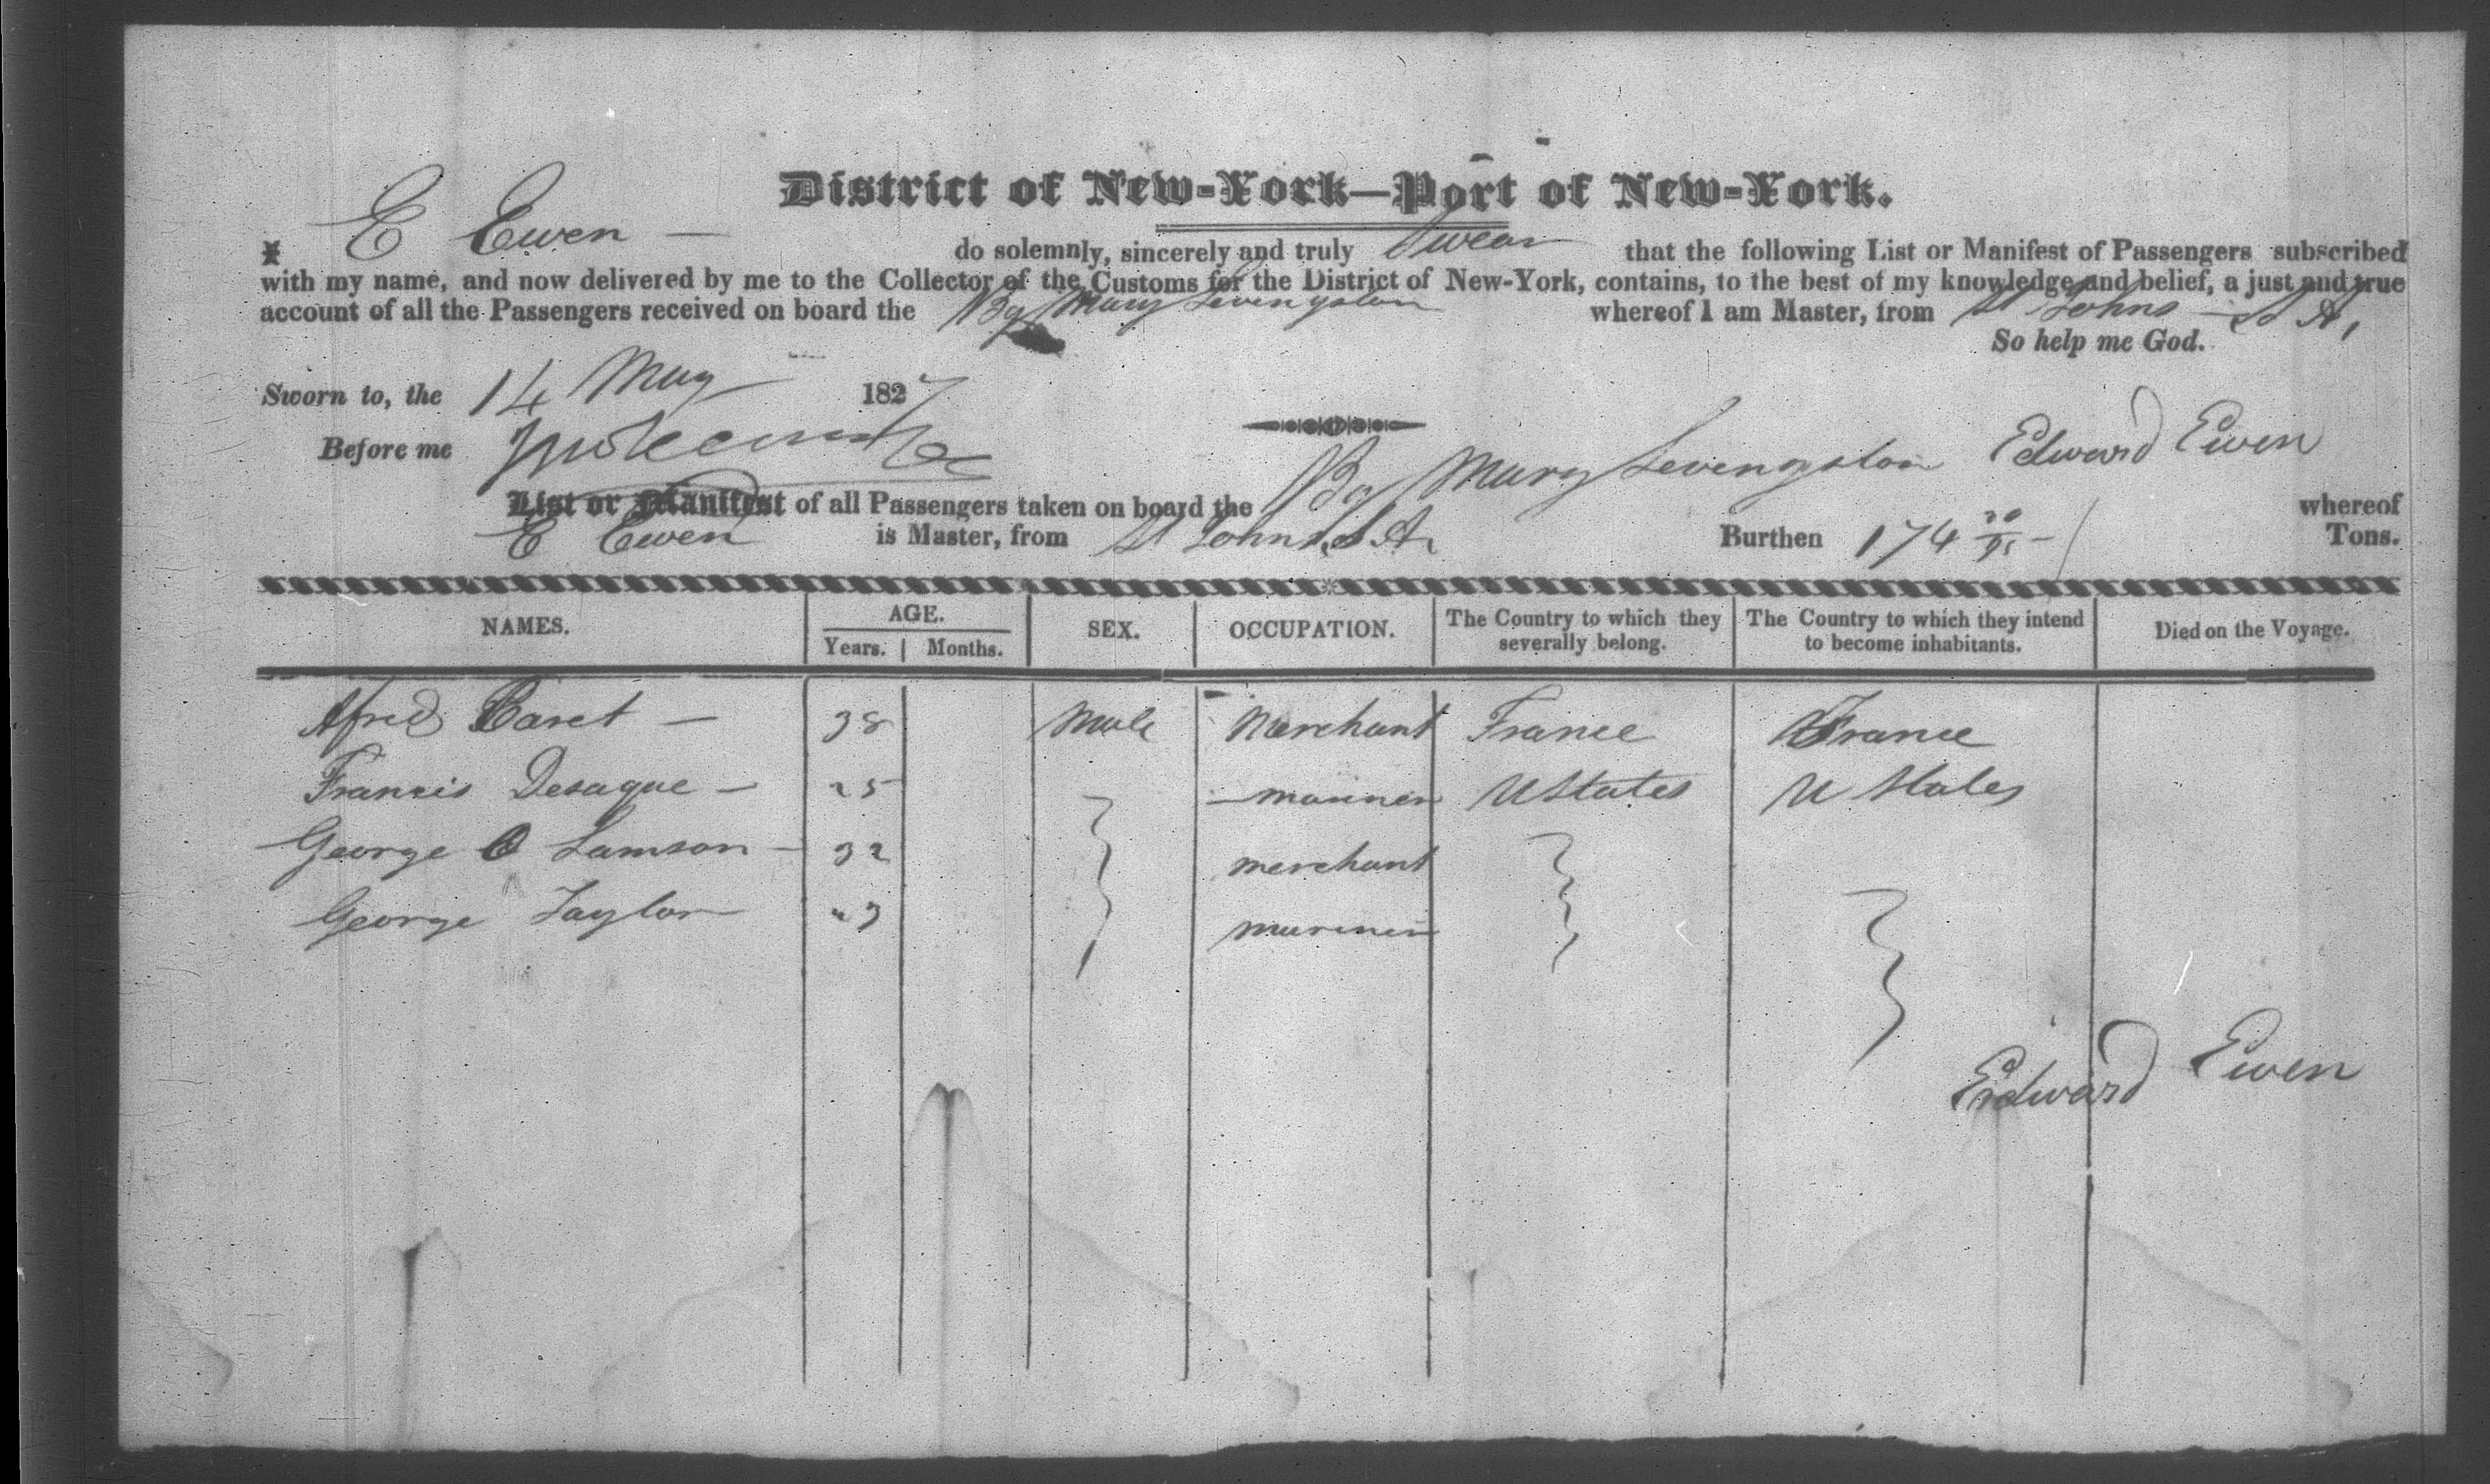 District of New-York—Port of New-York.
I E Ewen — do solemnly, sincerely and truly Swear that the following List or Manifest of Passengers subscribed
with my name, and now delivered by me to the Collector of the Customs for the District of New-York, contains, to the best of my knowledge and belief, a just and true
account of all the Passengers received on board the Bg Mary Levengston whereof I am Master, from St Johns - S A,
So help me God.
Sworn to, the 14 May 1827
Before me
Edward Ewen
List or Manifest of all Passengers taken on board the Bg Mary Levengston whereof
E Ewen is Master, from St Johns, S A, Burthen 174 Tons.
NAMES. AGE. SEX. OCCUPATION. The Country to which they severally belong. The Country to which they intend to become inhabitants. Died on the Voyage.
Years. Months.
Afred — 38 Male Merchant France France
Francis Desague — 25 — mariner U States U States
George O Lamson — 32 merchant
George Taylor 23 mariner
Edward Ewen